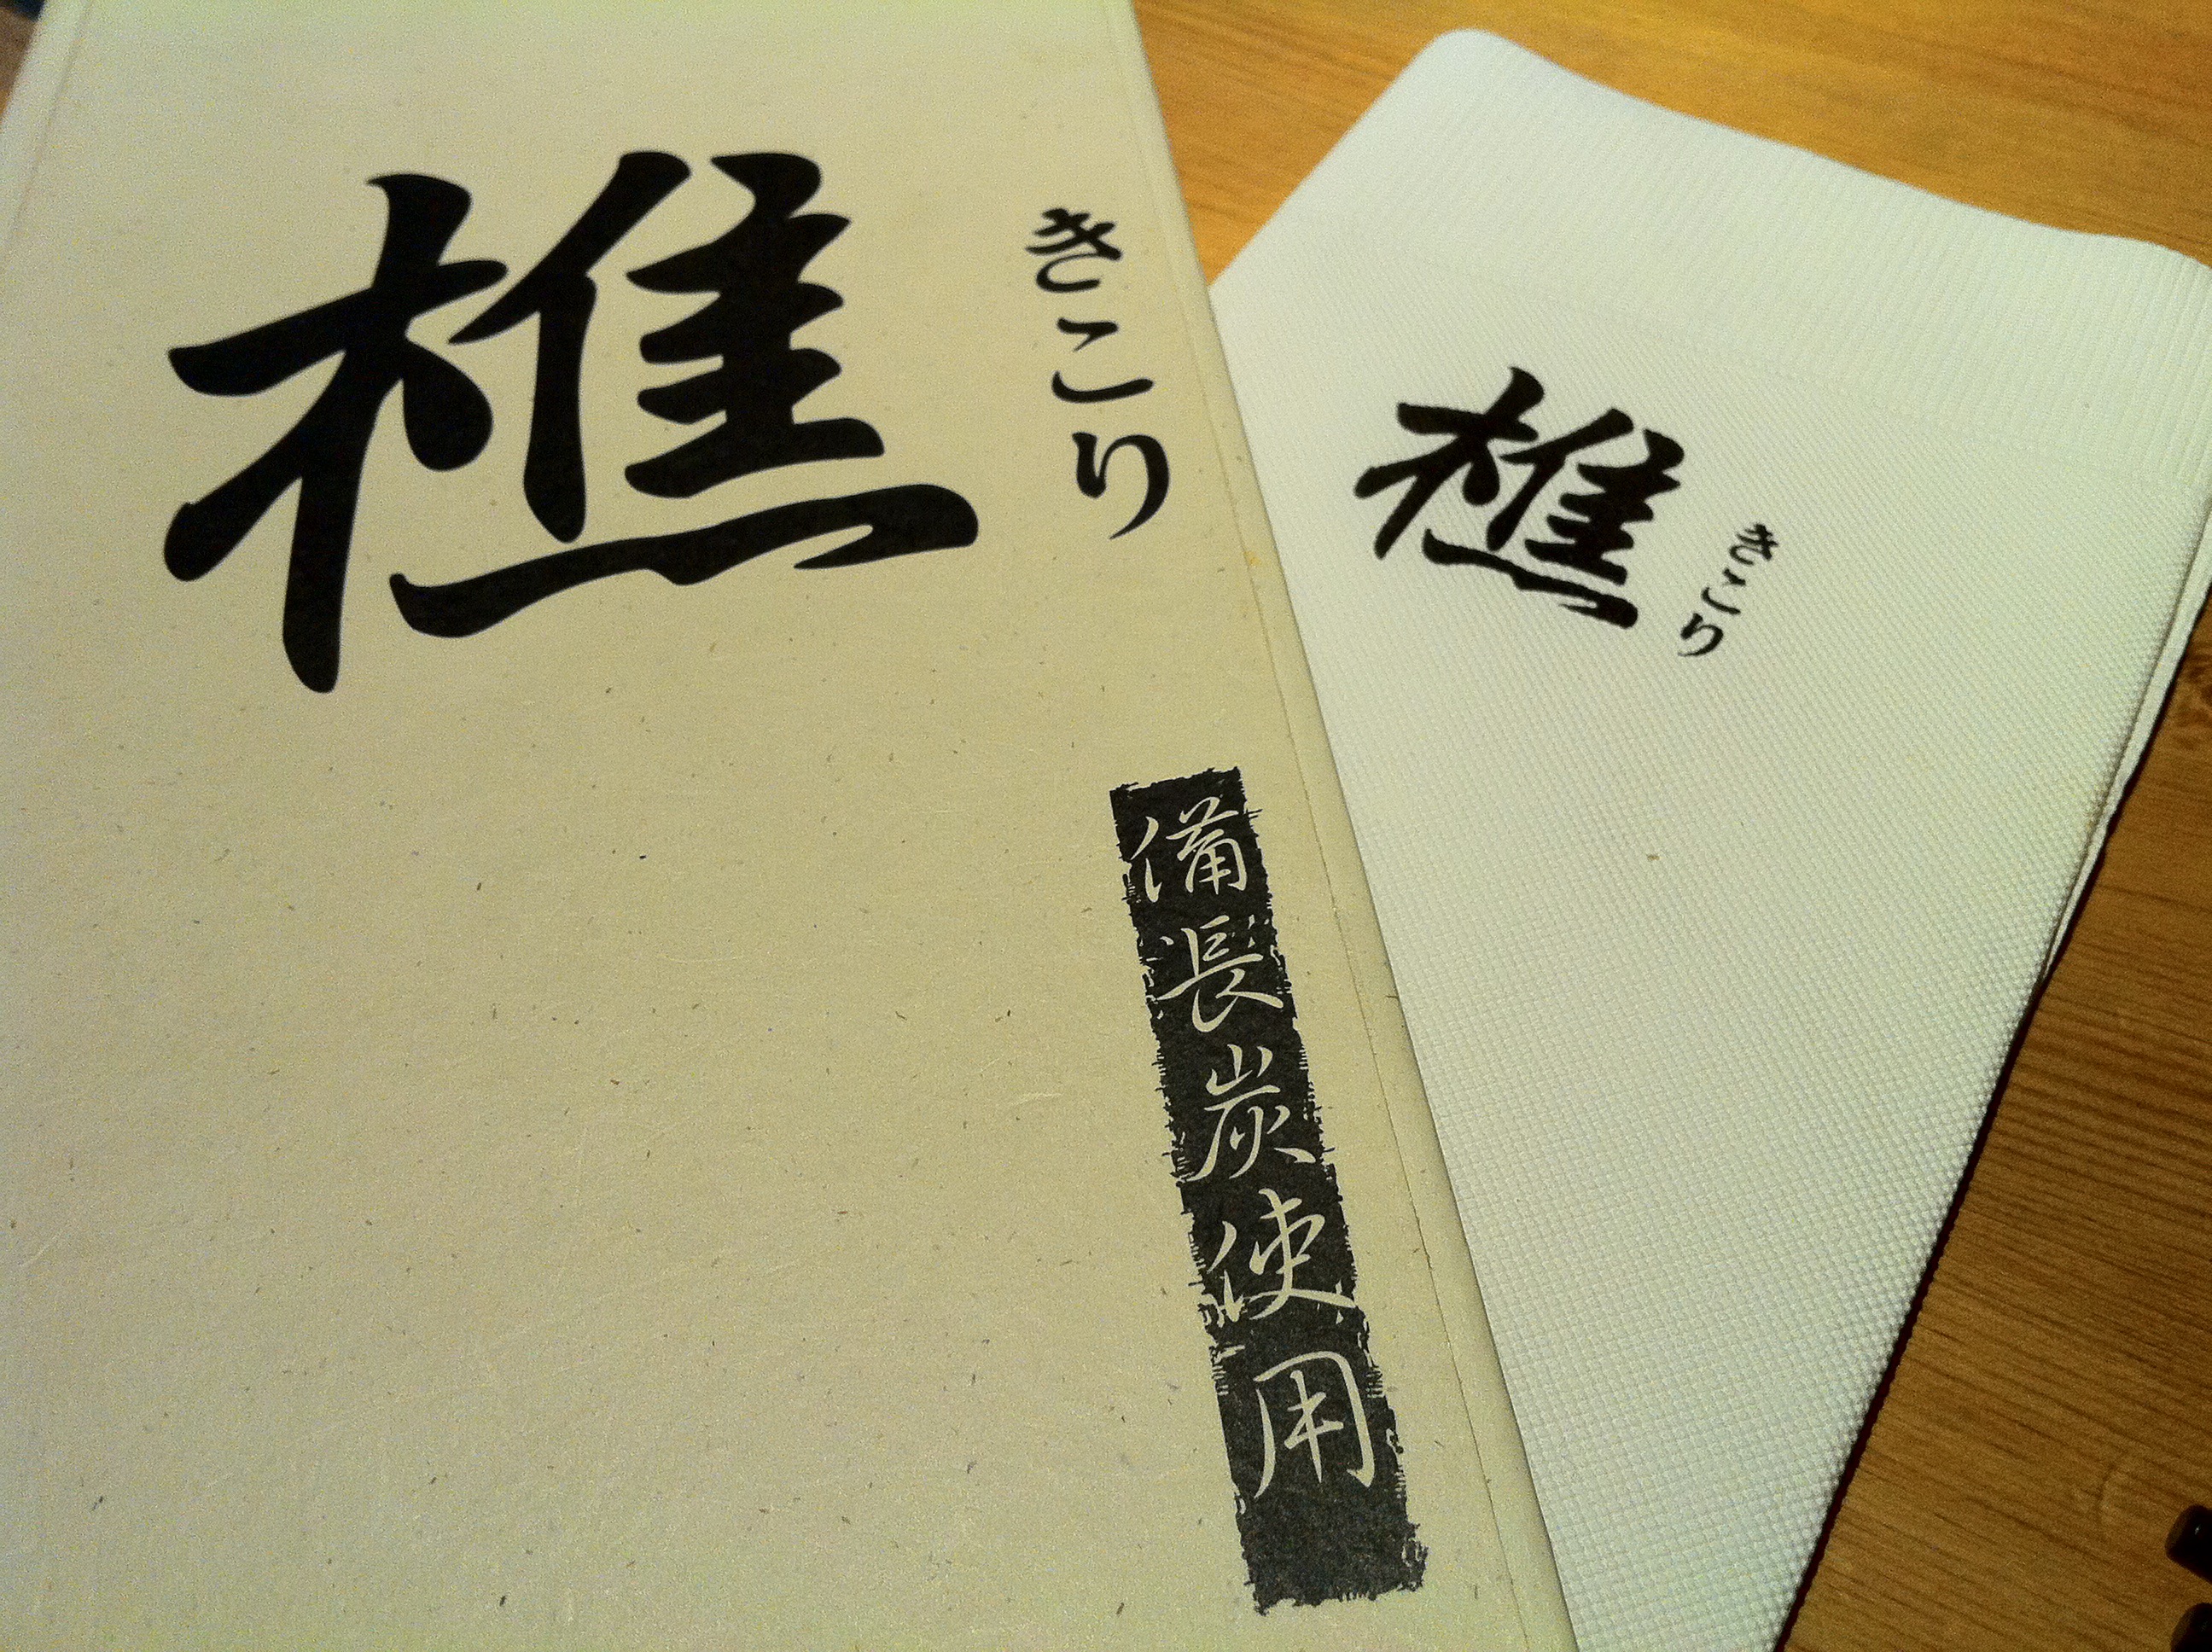 樵
きこり
備長炭使用
樵
きこり